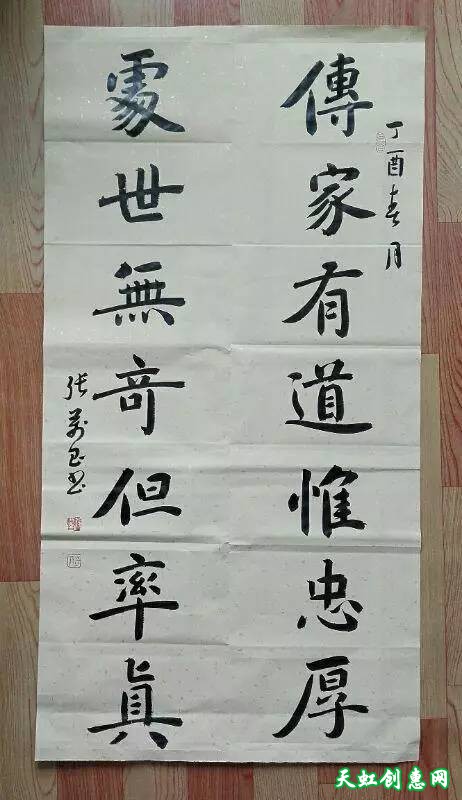 丁酉春月
傳家有道惟忠厚
處世無奇但率真
张万玉书
天虹创惠网